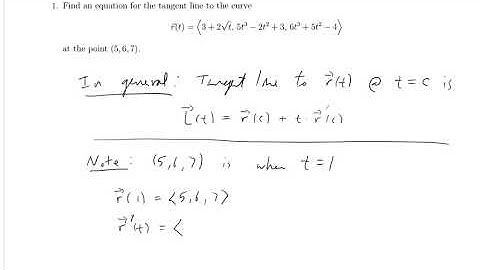 1. Find an equation for the tangent line to the curve
r⃗(t) = ⟨3 + 2√t, 5t³ − 2t² + 3, 6t³ + 5t² − 4⟩
at the point (5, 6, 7).
In general: Tangent line to r⃗(t) @ t = c is
L⃗(t) = r⃗(c) + t · r⃗'(c)
Note: (5,6,7) is when t = 1
r⃗(1) = ⟨5,6,7⟩
r⃗'(t) = ⟨